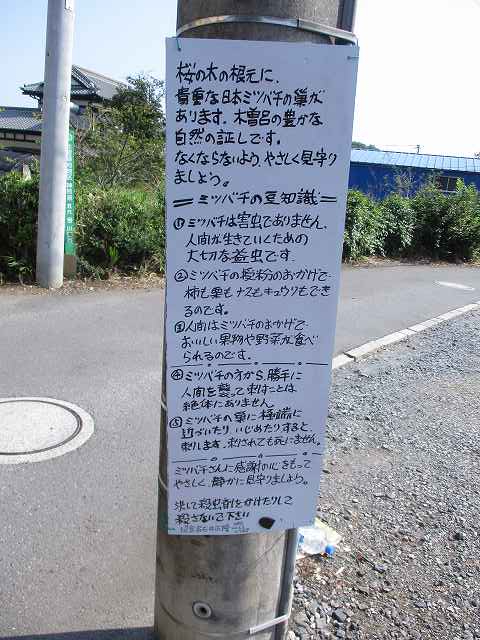 桜の木の根元に、
貴重な日本ミツバチの巣が
あります。木曽呂の豊かな
自然の証しです。
なくならないよう、やさしく見守り
ましょう。
＝ミツバチの豆知識＝
①ミツバチは害虫でありません、
人間が生きていくための
大切な益虫です。
②ミツバチの授粉のおかげで
柿も栗もナスもキュウリもでき
るのです。
③人間はミツバチのおかげで
おいしい果物や野菜が食べ
られるのです。
④ミツバチの方から、勝手に
人間を襲って刺すことは
絶体にありません。
⑤ミツバチの巣に極端に
近づいたり、いじめたりすると、
刺します。刺されても死にません。
ミツバチさんに感謝の心をもって
やさしく静かに見守りましょう。
決して殺虫剤をかけたりして
殺さないで下さい